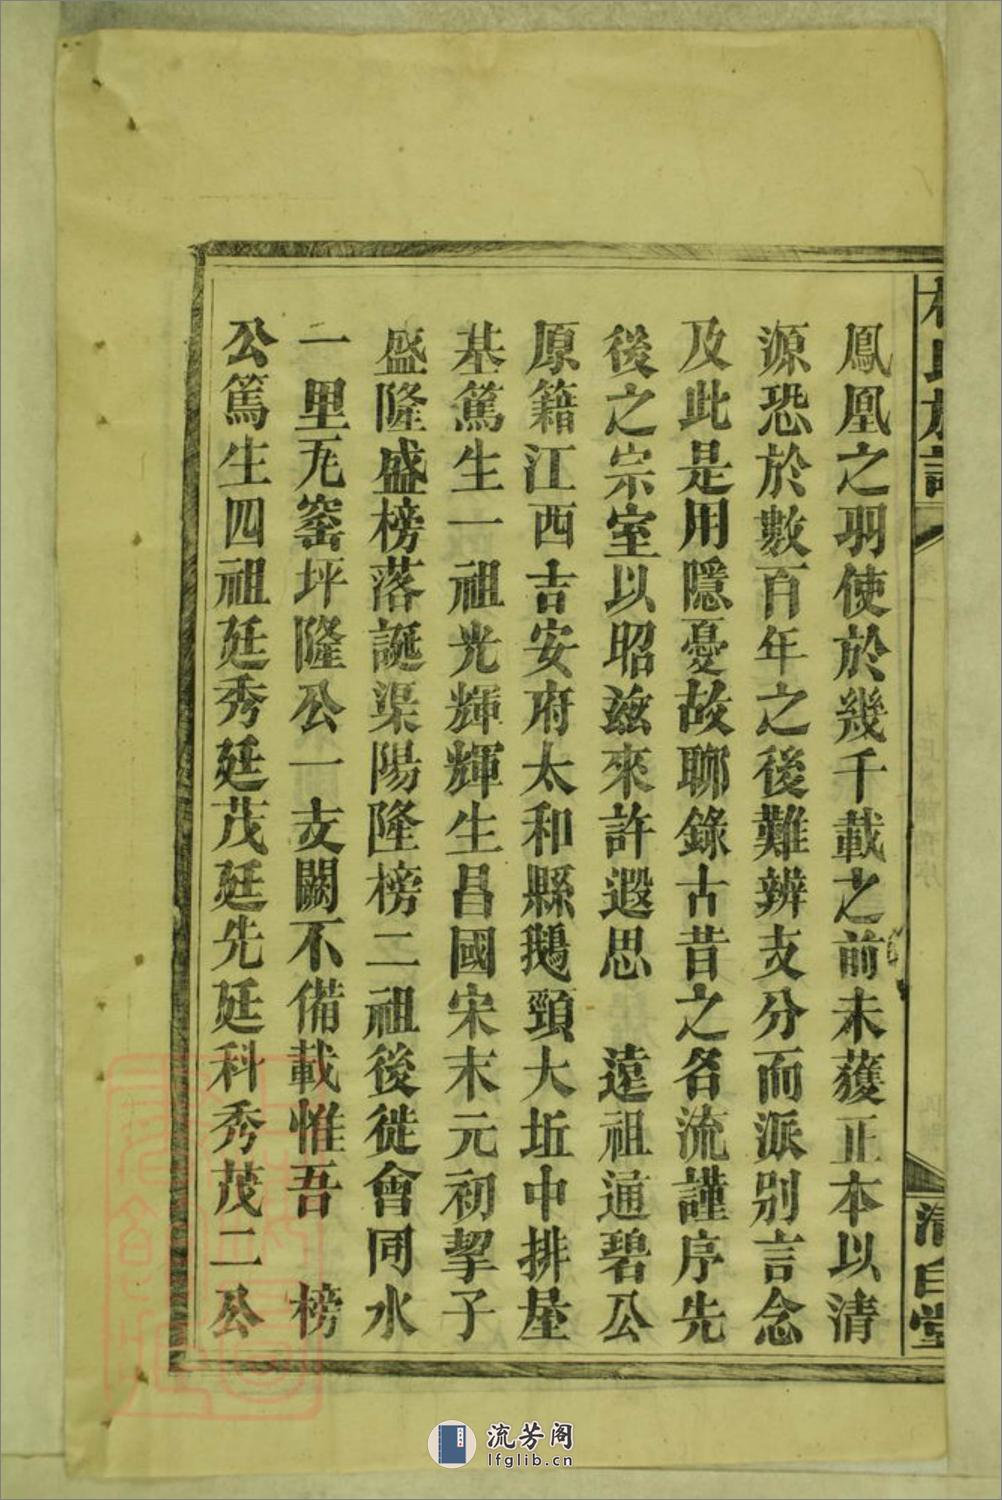 氏族譜
清白堂
鳳凰之羽使於幾千載之前未獲正本以清
源恐於數百年之後難辨支分而派別言念
及此是用隱憂故聊錄古昔之名流謹序先
後之宗室以昭茲來許遐思 遠祖通碧公
原籍江西吉安府太和縣鵝頸大坵中排屋
基篤生一祖光輝輝生昌國宋末元初挈子
盛隆盛榜落誕渠陽隆榜二祖後徙會同水
一里瓦窰坪隆公一支闕不備載惟吾 榜
公篤生四祖廷秀廷茂廷先廷科秀茂二公
流芳阁
lfglib.cn